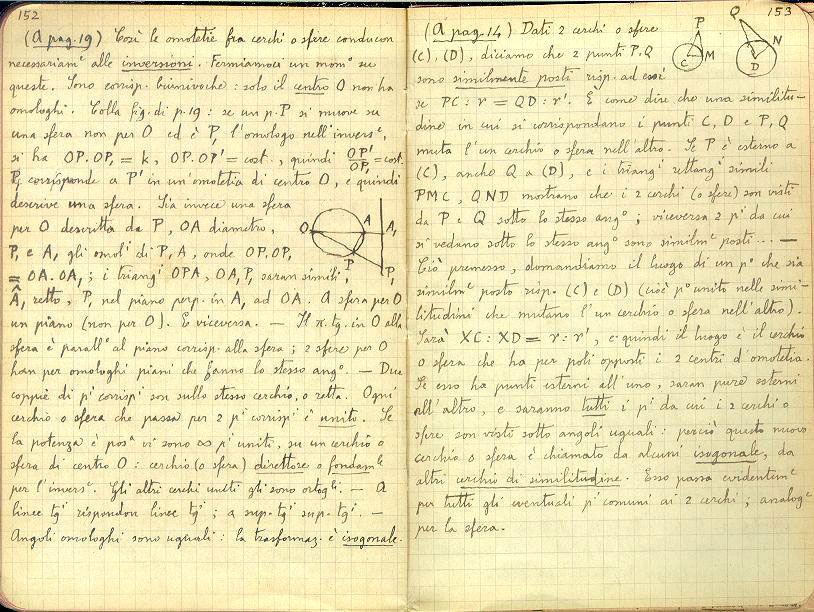 152
(A pag. 19) Così le omotetie fra cerchi o sfere conducon
necessariamᵉ alle inversioni. Fermiamoci un momᵒ su
queste. Sono corrisp. biunivoche: solo il centro O non ha
omologhi. Colla fig. di p. 19: se un p. P si muove su
una sfera non per O ed è P₁ l'omologo nell'inversᵉ,
si ha OP.OP₁ = k, OP.OP' = cost., quindi OP'/OP₁ = cost.
P₁ corrisponde a P' in un'omotetia di centro O, e quindi
descrive una sfera. Sia invece una sfera
per O descritta da P, OA diametro,
P₁ e A₁ gli omolⁱ di P, A, onde OP.OP₁
= OA.OA₁; i triangⁱ OPA, OA₁P₁ saran simili,
Â₁ retto, P₁ nel piano perp. in A₁ ad OA. A sfera per O
un piano (non per O). E viceversa. — Il π. tg. in O alla
sfera è parallᵒ al piano corrisp. alla sfera; 2 sfere per O
han per omologhi piani che fanno lo stesso angᵒ. — Due
coppie di pⁱ corrispⁱ son sullo stesso cerchio, o retta. Ogni
cerchio o sfera che passa per 2 pⁱ corrispⁱ è unito. Se
la potenza è posᵃ vi sono ∞ pⁱ uniti, su un cerchio o
sfera di centro O: cerchio (o sfera) direttore o fondamˡᵉ
per l'inversᵉ. Gli altri cerchi uniti gli sono ortogˡⁱ. — A
linee tgⁱ rispondon linee tgⁱ; a sup. tgⁱ sup. tgⁱ. —
Angoli omologhi sono uguali: la trasformaz. è isogonale.
O A A₁ P P₁
153
(A pag. 14) Dati 2 cerchi o sfere
(C), (D), diciamo che 2 punti P, Q
sono similmente posti risp. ad essi
se PC : r = QD : r'. È come dire che una similitu-
dine in cui si corrispondano i punti C, D e P, Q
muta l'un cerchio o sfera nell'altro. Se P è esterno a
(C), anche Q a (D), e i triangⁱ rettangⁱ simili
PMC, QND mostrano che i 2 cerchi (o sfere) son visti
da P e Q sotto lo stesso angᵒ; viceversa 2 pⁱ da cui
si vedano sotto lo stesso angᵒ sono similmᵉ posti ... —
Ciò premesso, domandiamo il luogo di un pᵒ che sia
similmᵉ posto risp. (C) e (D) (cioè pᵒ unito nelle simi-
litudini che mutano l'un cerchio o sfera nell'altro).
Sarà XC : XD = r : r', e quindi il luogo è il cerchio
o sfera che ha per poli opposti i 2 centri d'omotetia.
Se esso ha punti esterni all'uno, saran pure esterni
all'altro, e saranno tutti i pⁱ da cui i 2 cerchi o
sfere son visti sotto angoli uguali: perciò questo nuovo
cerchio o sfera è chiamato da alcuni isogonale, da
altri cerchio di similitudine. Esso passa evidentemᵉ
per tutti gli eventuali pⁱ comuni ai 2 cerchi; analogᵉ
per la sfera.
P C M
Q N D